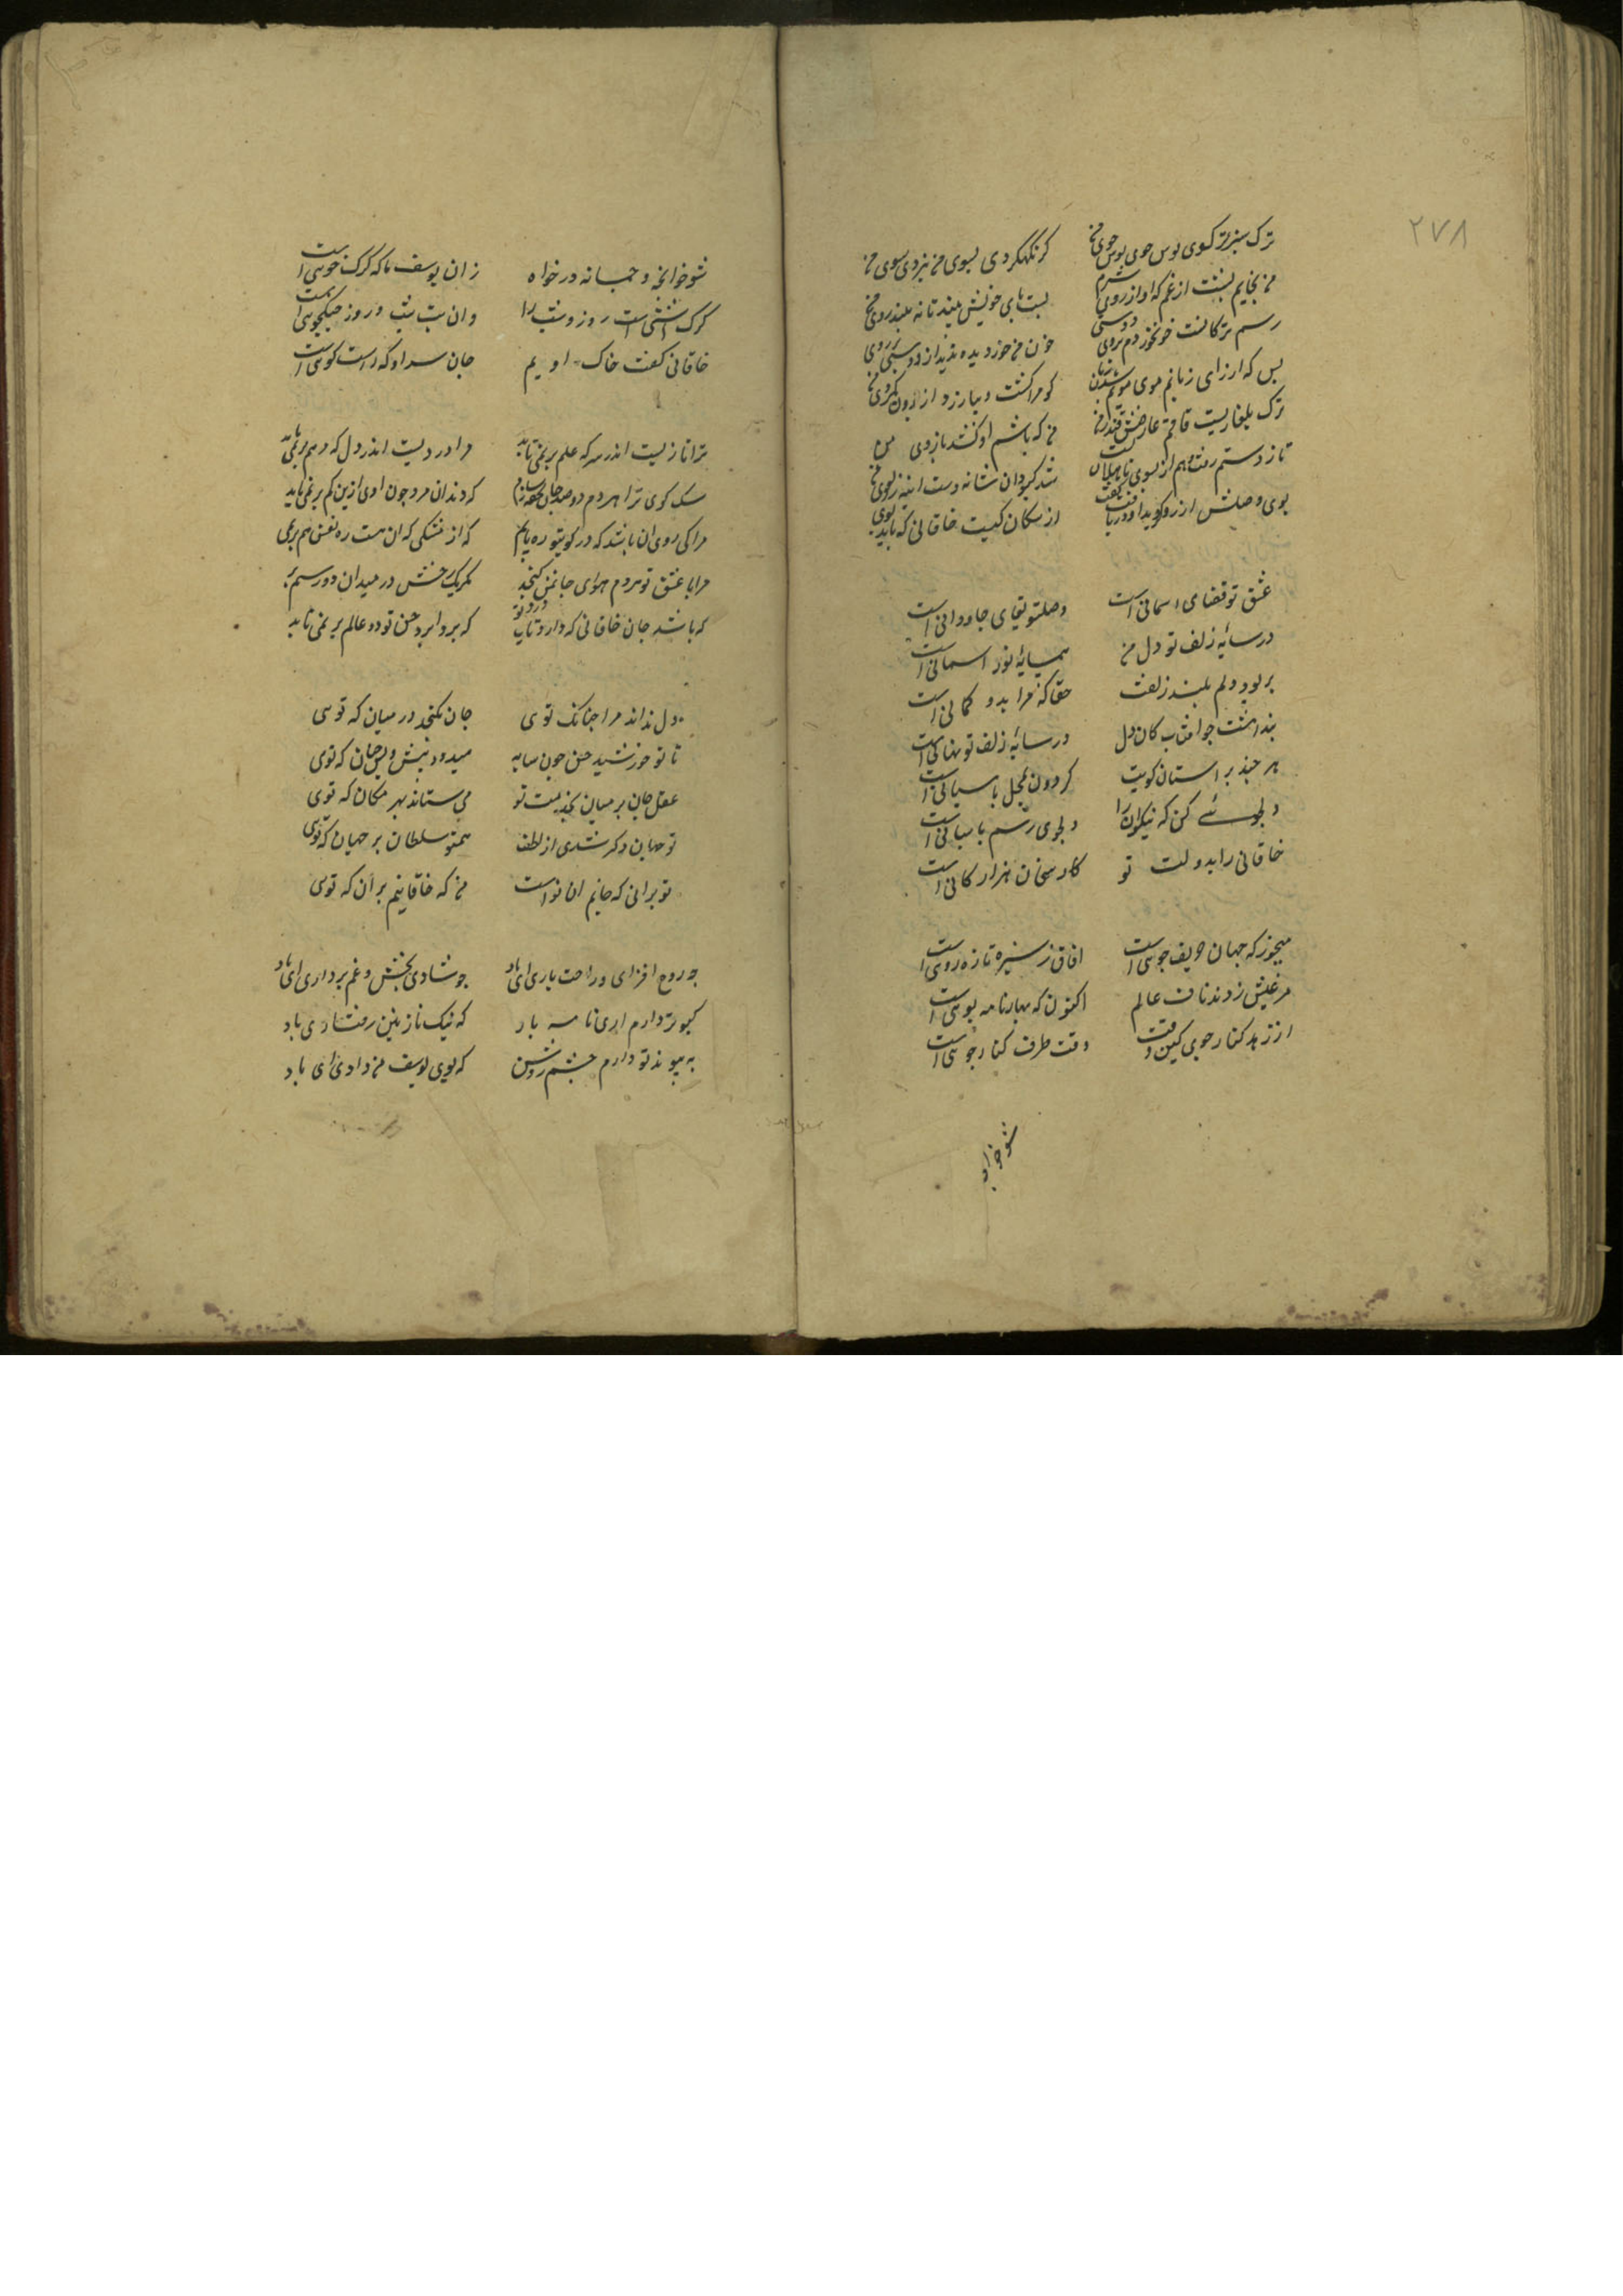 ۲۷۸
ترک سن سن گوی توسن خوی سوسن بوی من گر نگه کردی بسوی من نبردی سوی من
من بخایم پشت از غم که او از روی شرم پشت پای خویش بیند تا نبیند روی من
رسم ترکانست خون خوردن ز روی دوستی خون من خورد و ندید از دوستی در روی من
بس که از زاری زبانم موی
ترک بلغاریست قاقم عارض و قندز مژه من که باشم تا کشد بازوی من
تا ز دستم رفت و هم زانوی نااهلان نشست شد کبود از شانه دست اینه زانوی من
بوی وصلش ارزو میکردم او دریافت گفت از سگان کیست خاقانی که یابد بوی من
عشق تو قضای اسمانی است وصل تو بقای جاودانی است
در سایه زلف تو دل من همسایه نور اسمانی است
بربود دلم بلند زلفت حقا که مرا بدو گمانی است
پنداشت جو افتاب کان دل در سایه زلف تو نهانی است
هر چند بر استان کویت گردون بمحل پاسبانی است
دلجوئی کن که نیکوان را دلجوی رسم باستانی است
خاقانی را بدولت تو کار سخنان هزارگانی است
میخور که جهان حریف جوی است افاق ز سبزه تازه روی است
بر عیش زدند ناف عالم اکنون که بهار نافه بوی است
از زهد کنار جوی کین وقت وقت طرف کنار جوی است
شو خوانچه
شو خوانچه و جمانه در خواه زان یوسف ما که گرک خوی است
گرگ اشتی است روز و شب را وان بت شب و روز جنگجوی است
خاقانی گفت خاک اویم جان سر او که راست گوی است
ترا نازیست اندر سر که عالم بر نمی تابد مرا دردیست اندر دل که مرهم بر نمی تابد
سک کوی ترا هر دم دو صد جان تحفه میسازم که دندان مرد جون اوی ازین کم بر نمی تابد
مرا کی روی ان باشد که در کوی تو ره یابم که از تنگی که ان هست ره نفس هم بر نمی
مرا با عشق تو در دل هوای جان نمی گنجد مگر یک رخش در میدان دو رستم بر
که باشد جان خاقانی که دارد تاب درد تو که بردابرد حسن تو دو عالم بر نمی تابد
دل نداند مرا جنانک توی جان نگنجد در میان که توی
تا تو خورشید حسن جون سایه میدود پیش و پس جنان که توی
عقل جان بر میان بخدمت تو می ستاند بهر مکان که توی
تو جهان دگر شدی از لطف همتو سلطان بر جهان که توی
تو برانی که جانم ان تو است من که خاقانیم بر ان که توی
جه روح افزای و راحت باری ای باد جو شادی بخش و غم برداری ای باد
کبوتر دارم اری نامه بر که نیک نازنین رفتاری باد
به پیوند تو دارم چشم روشن که بوی یوسف من داری ای باد